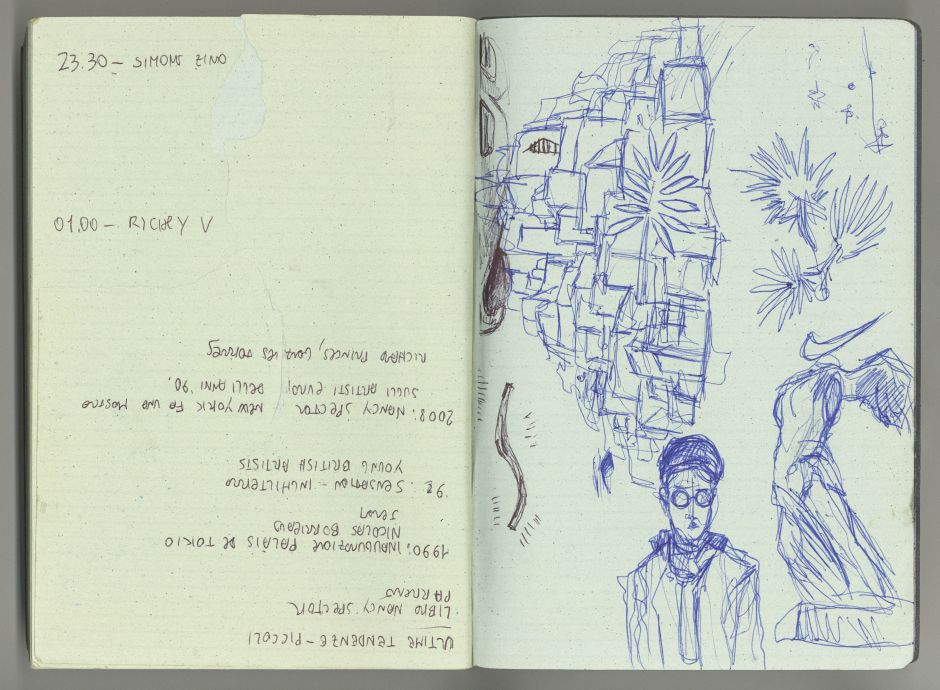 23.30 - SIMONS ZINO
01.00 - RICHEY V
ULTIME TENDENZE - PICCOLI
LIBRO NANCY SPECTOR
PARRENO
1990: INAUGURAZIONE PALAIS DE TOKIO
NICOLAS
SENSATION - INGHILTERRA
YOUNG BRITISH ARTISTS
2008: NANCY SPECTOR NEW YORK FA UNA MOSTRA
SULLI ARTISTI DELLI ANNI '90.
RICHARD PRINCES, TORRES